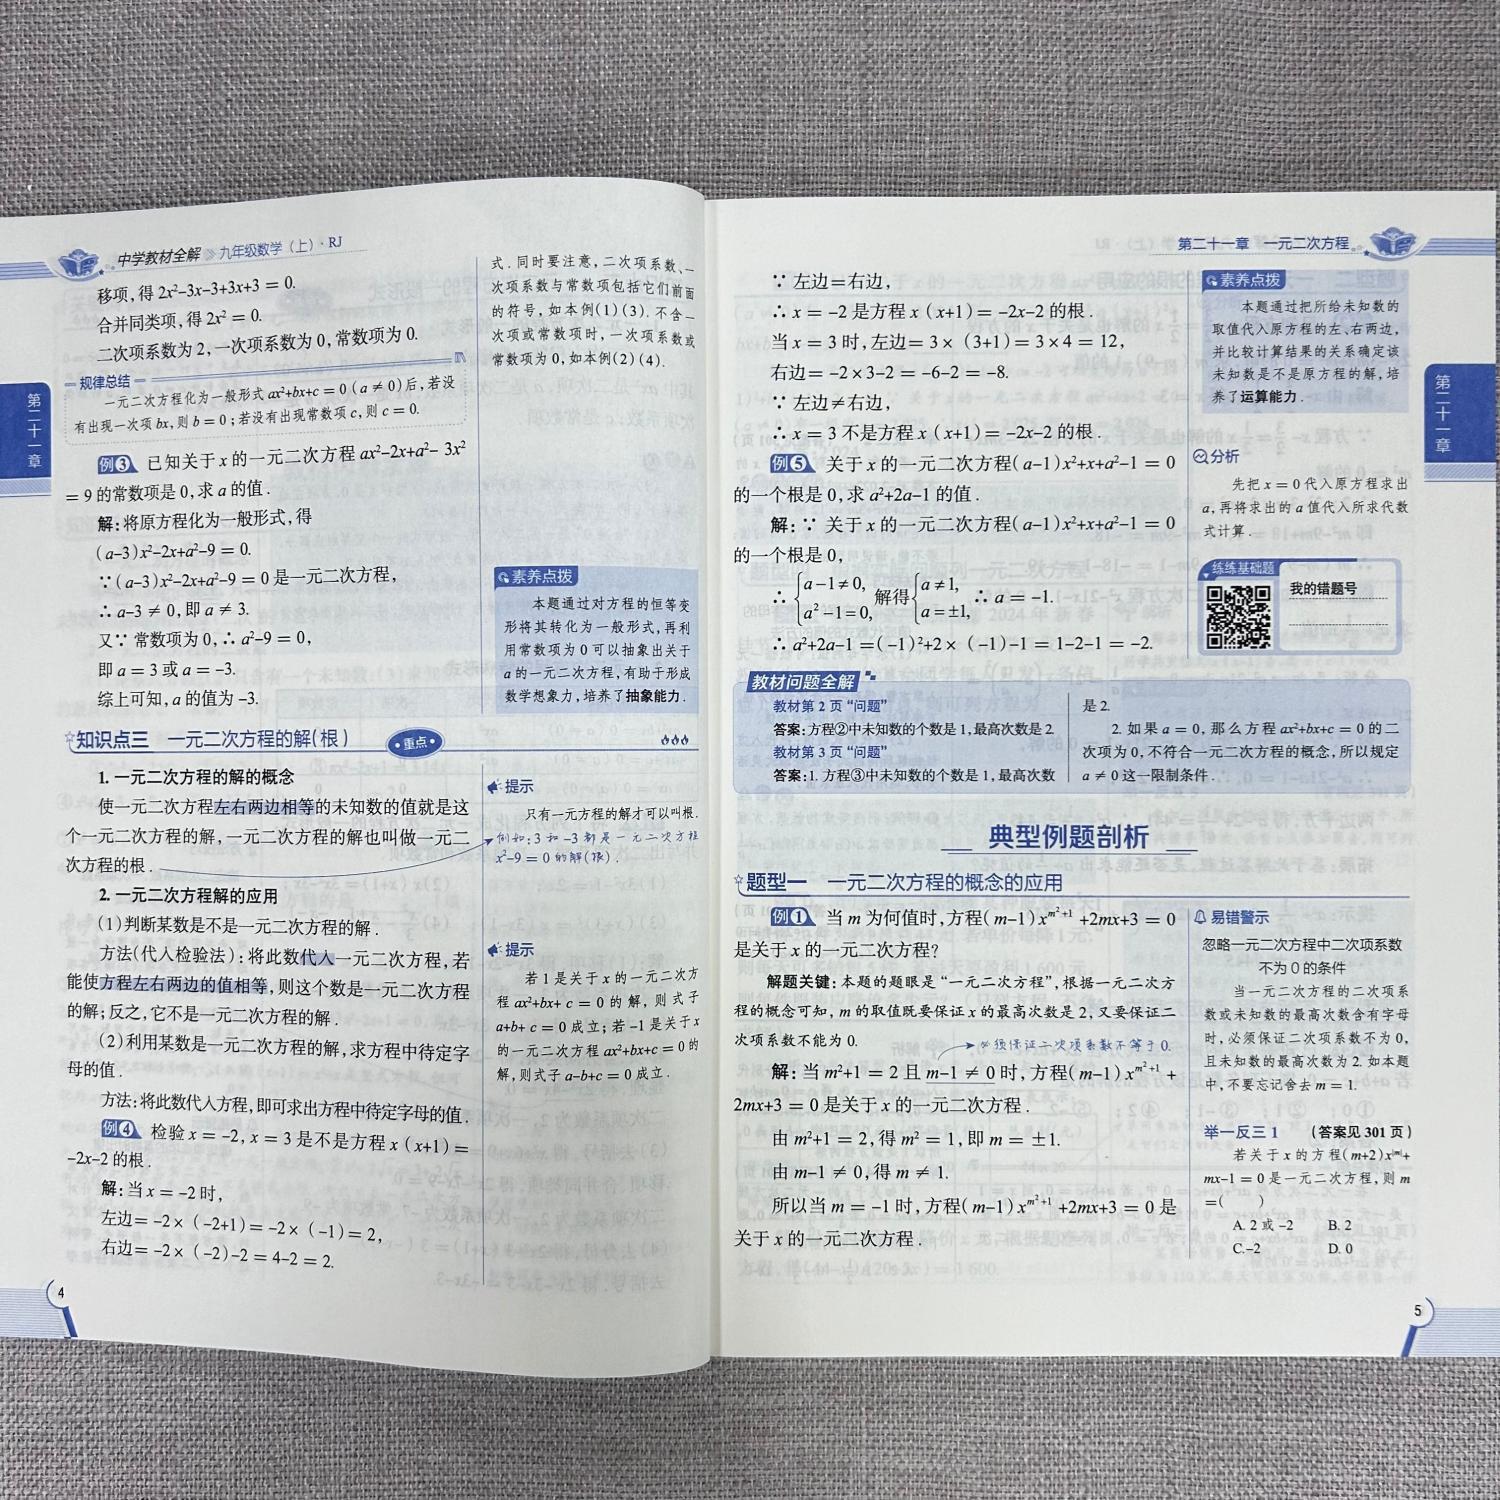 中学教材全解 九年级数学（上）·RJ
移项,得 2x²-3x-3+3x+3 = 0.
合并同类项,得 2x² = 0.
二次项系数为 2,一次项系数为 0,常数项为 0.
规律总结
一元二次方程化为一般形式 ax²+bx+c = 0 (a ≠ 0)后,若没
有出现一次项 bx,则 b = 0;若没有出现常数项 c,则 c = 0.
例3 已知关于 x 的一元二次方程 ax²-2x+a²- 3x²
= 9 的常数项是 0,求 a 的值.
解:将原方程化为一般形式,得
(a-3)x²-2x+a²-9 = 0.
∵(a-3)x²-2x+a²-9 = 0 是一元二次方程,
∴ a-3 ≠ 0,即 a ≠ 3.
又∵ 常数项为 0,∴ a²-9 = 0,
即 a = 3 或 a = -3.
综上可知,a 的值为 -3.
式.同时要注意,二次项系数、一
次项系数与常数项包括它们前面
的符号,如本例(1)(3).不含一
次项或常数项时,一次项系数或
常数项为 0,如本例(2)(4).
素养点拨
本题通过对方程的恒等变
形将其转化为一般形式,再利
用常数项为 0 可以抽象出关于
a 的一元二次方程,有助于形成
数学想象力,培养了抽象能力.
知识点三 一元二次方程的解(根) ·重点·
1. 一元二次方程的解的概念
使一元二次方程左右两边相等的未知数的值就是这
个一元二次方程的解,一元二次方程的解也叫做一元二
次方程的根.
2. 一元二次方程解的应用
(1)判断某数是不是一元二次方程的解.
方法(代入检验法):将此数代入一元二次方程,若
能使方程左右两边的值相等,则这个数是一元二次方程
的解;反之,它不是一元二次方程的解.
(2)利用某数是一元二次方程的解,求方程中待定字
母的值.
方法:将此数代入方程,即可求出方程中待定字母的值.
例4 检验 x = -2, x = 3 是不是方程 x (x+1) =
-2x-2 的根.
解:当 x = -2 时,
左边= -2× (-2+1) = -2× (-1) = 2,
右边= -2× (-2)-2 = 4-2 = 2.
提示
只有一元方程的解才可以叫根.
例如:3 和 -3 都是一元二次方程
x²-9 = 0 的解(根).
提示
若 1 是关于 x 的一元二次方
程 ax²+bx+ c = 0 的解,则式子
a+b+ c = 0 成立;若 -1 是关于 x
的一元二次方程 ax²+bx+c = 0 的
解,则式子 a-b+c = 0 成立.
第二十一章
4
第二十一章 一元二次方程
∵ 左边=右边,
∴ x = -2 是方程 x (x+1) = -2x-2 的根.
当 x = 3 时,左边= 3× (3+1) = 3×4 = 12,
右边= -2×3-2 = -6-2 = -8.
∵ 左边≠右边,
∴ x = 3 不是方程 x (x+1) = -2x-2 的根.
例5 关于 x 的一元二次方程(a-1)x²+x+a²-1 = 0
的一个根是 0,求 a²+2a-1 的值.
解:∵ 关于 x 的一元二次方程(a-1)x²+x+a²-1 = 0
的一个根是 0,
∴ { a-1≠0, a²-1=0, 解得 { a≠1, a=±1, ∴ a = -1.
∴ a²+2a-1 =(-1)²+2× (-1)-1 = 1-2-1 = -2.
素养点拨
本题通过把所给未知数的
取值代入原方程的左、右两边,
并比较计算结果的关系确定该
未知数是不是原方程的解,培
养了运算能力.
分析
先把 x = 0 代入原方程求出
a,再将求出的 a 值代入所求代数
式计算.
练练基础题
我的错题号
教材问题全解
教材第 2 页 “问题”
答案:方程②中未知数的个数是 1,最高次数是 2.
教材第 3 页 “问题”
答案:1. 方程③中未知数的个数是 1,最高次数
是 2.
2. 如果 a = 0,那么方程 ax²+bx+c = 0 的二
次项为 0,不符合一元二次方程的概念,所以规定
a ≠ 0 这一限制条件.
典型例题剖析
题型一 一元二次方程的概念的应用
例1 当 m 为何值时,方程(m-1)x^{m²+1} +2mx+3 = 0
是关于 x 的一元二次方程?
解题关键:本题的题眼是 “一元二次方程”,根据一元二次方
程的概念可知,m 的取值既要保证 x 的最高次数是 2,又要保证二
次项系数不能为 0.
必须保证二次项系数不等于 0.
解:当 m²+1 = 2 且 m-1 ≠ 0 时,方程(m-1)x^{m²+1} +
2mx+3 = 0 是关于 x 的一元二次方程.
由 m²+1 = 2,得 m² = 1,即 m = ±1.
由 m-1 ≠ 0,得 m ≠ 1.
所以当 m = -1 时,方程(m-1)x^{m²+1} +2mx+3 = 0 是
关于 x 的一元二次方程.
易错警示
忽略一元二次方程中二次项系数
不为 0 的条件
当一元二次方程的二次项系
数或未知数的最高次数含有字母
时,必须保证二次项系数不为 0,
且未知数的最高次数为 2.如本题
中,不要忘记舍去 m = 1.
举一反三 1 (答案见 301 页)
若关于 x 的方程(m+2)x^{|m|}+
mx-1 = 0 是一元二次方程,则 m
=( )
A. 2 或 -2 B. 2
C.-2 D. 0
第二十一章
5